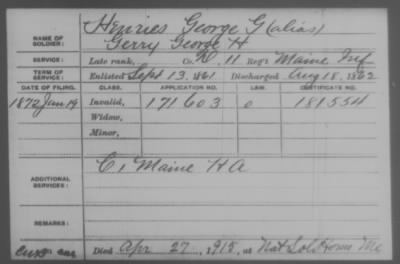 NAME OF SOLDIER: Henries George G (alias)
Gerry George H
SERVICE: Late rank, Co. K, 11 Reg't Maine Inf
TERM OF SERVICE: Enlisted Sept 13, 1861 Discharged Aug 18, 1862
DATE OF FILING. CLASS. APPLICATION NO. LAW. CERTIFICATE NO.
1872 Jun 19 Invalid, 171603 0 181554
Widow,
Minor,
ADDITIONAL SERVICES: C, 1 Maine H A
REMARKS:
Died Apr 27, 1915, at Nat Sol Home Me